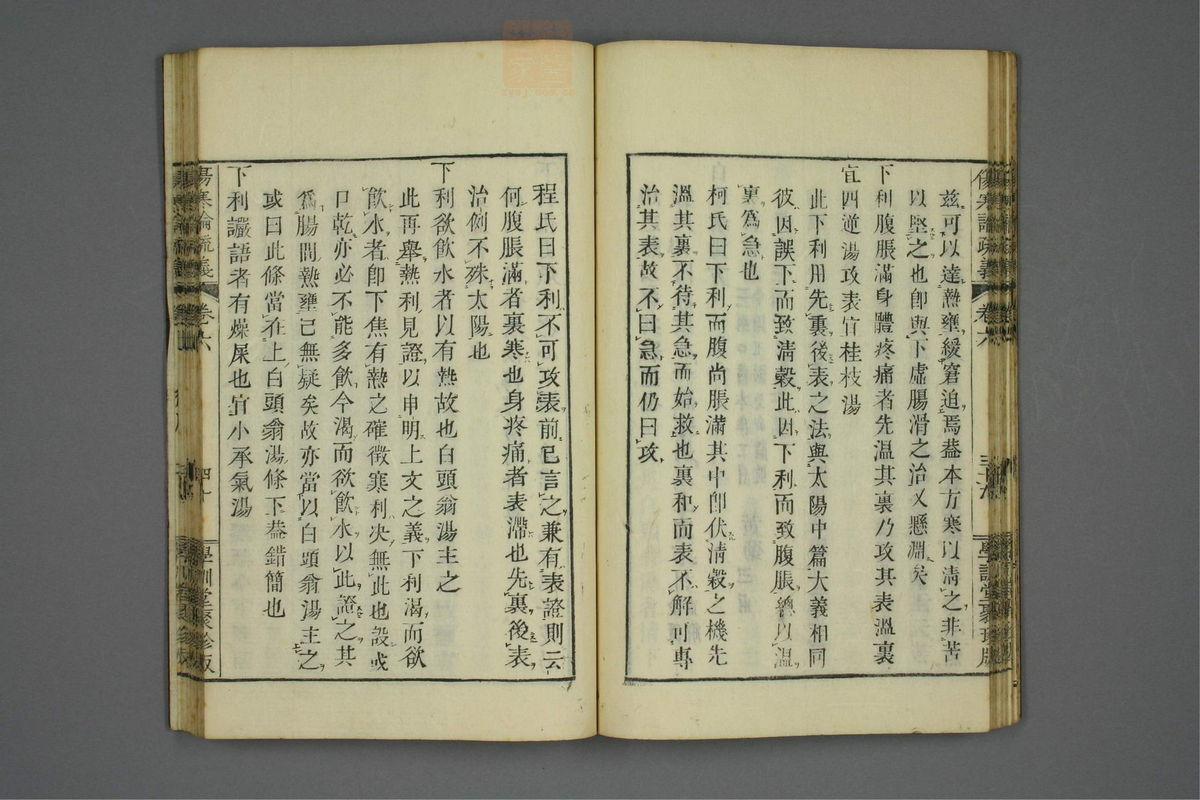 傷寒論疏義 卷六
學訓堂聚珍版
茲可以達熱壅緩窘迫焉蓋本方寒以淸之非苦
以堅之也卽與下虛腸滑之治乂懸淵矣
下利腹脹滿身體疼痛者先溫其裏乃攻其表溫裏
宜四逆湯攻表宜桂枝湯
此下利用先裏後表之法與太陽中篇大義相同
彼因誤下而致淸穀此因下利而致腹脹總以溫
裏爲急也
柯氏曰下利而腹尚脹滿其中卽伏淸穀之機先
溫其裏不待其急而始救也裏和而表不解可專
治其表故不曰急而仍曰攻
程氏曰下利不可攻表前已言之兼有表證則云
何腹脹滿者裏寒也身疼痛者表滯也先裏後表
治例不殊太陽也
下利欲飮水者以有熱故也白頭翁湯主之
此再舉熱利見證以申明上文之義下利渴而欲
飮水者卽下焦有熱之確徵寒利決無此也設或
口乾亦必不能多飮今渴而欲飮水以此證之其
爲腸間熱壅已無疑矣故亦當以白頭翁湯主之
或曰此條當在上白頭翁湯條下蓋錯簡也
下利讝語者有燥屎也宜小承氣湯
傷寒論疏義 卷六 四十
學訓堂聚珍版